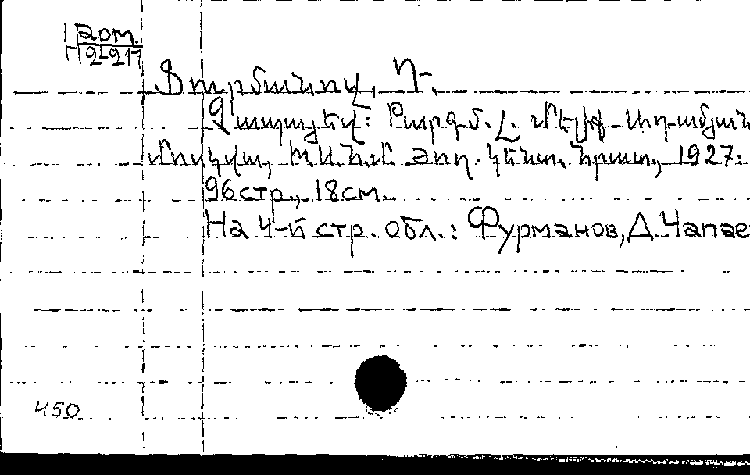 Ֆուրմանով, Դ.
Չապայեվ: Թարգմ. Լ. Մելիք-Աղամյան
Մոսկվա, ԽՍՀՄ Ժող. կենտ. հրատ., 1927:
96стр., 18см.
На 4-й стр. обл.: Фурманов, Д. Чапае
450